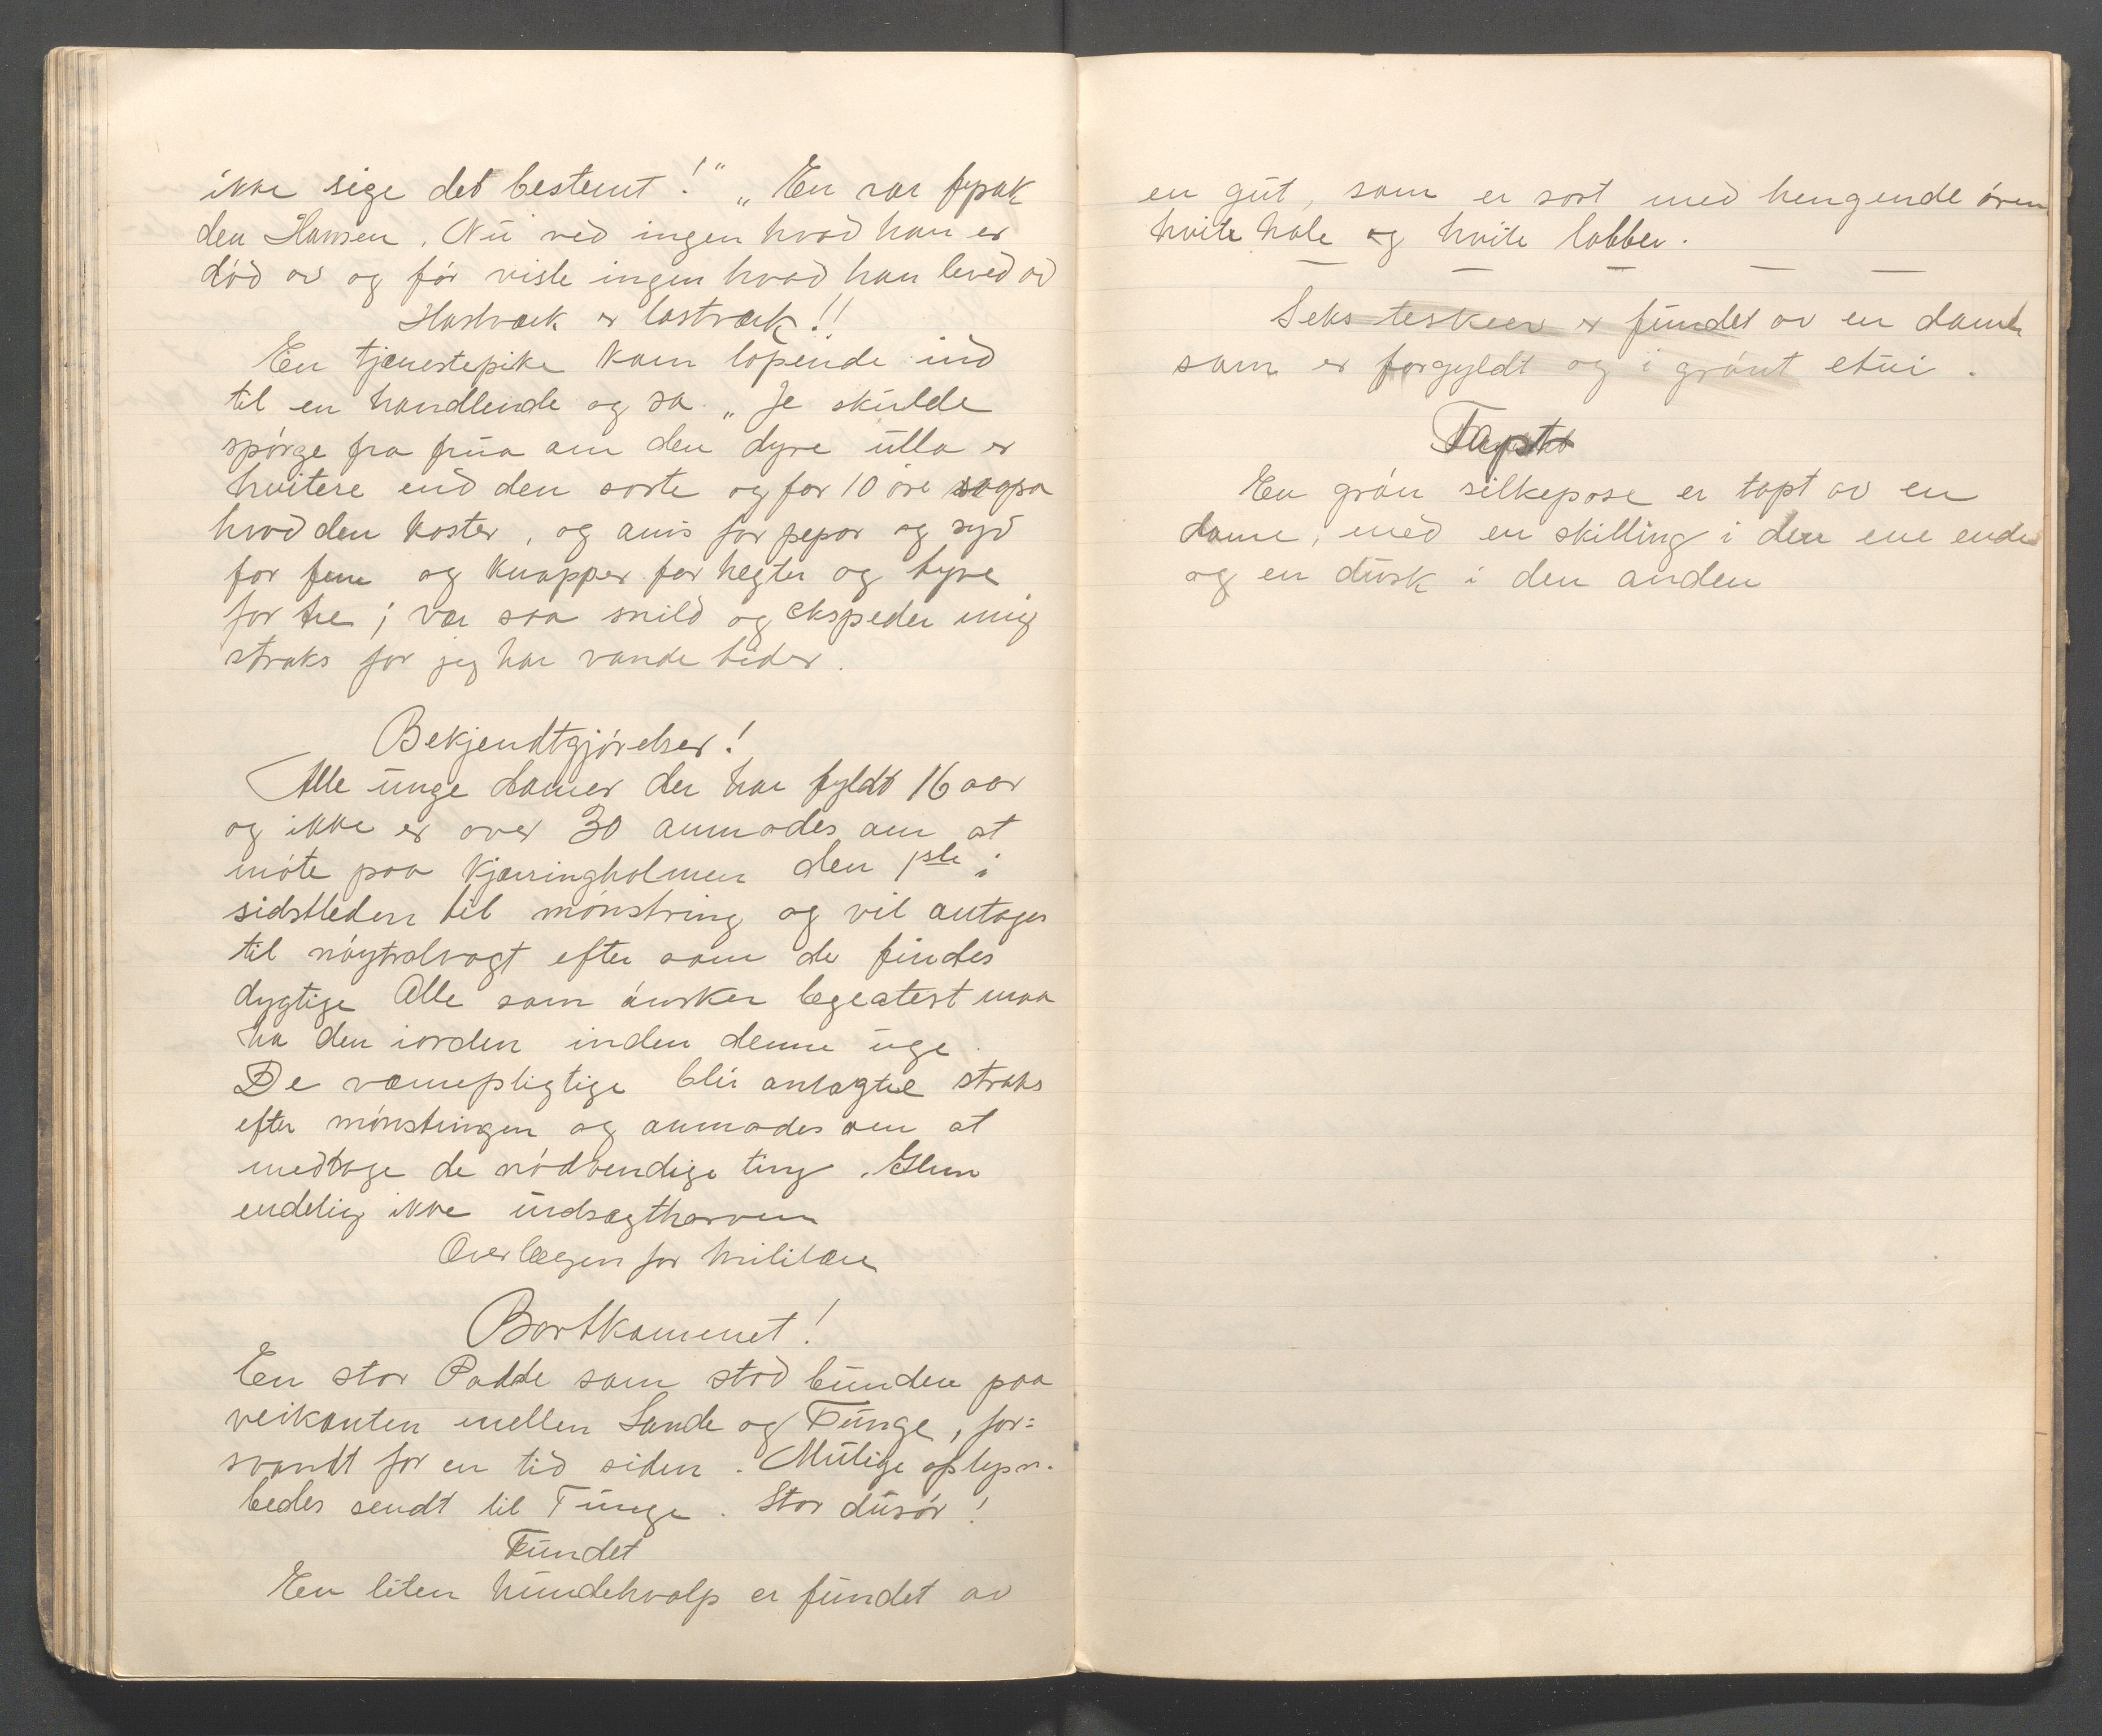 ikke sige det bestemt!" „En rar fysak
den Hansen. Nu ved ingen hvad han er
død av og før viste ingen hvad han leved av
Hastværk er lastværk!!
En tjænestepike kom løpende ind
til en handlende og sa „Je skulde
spørge fra frua om den dyre ulla er
hvitere end den sorte og for 10 øre sagpa
hvad den koster, og anis for pepar og syd
for fem og knapper for hegter og tyve
for tre; vær saa snild og ekspeder mig
straks for jeg har vande tider.
Bekjendtgjørelser!
Alle unge damer der har fyldt 16 aar
og ikke er over 30 anmodes om at
møte paa Kjærringholmen den 1ste i
sidstleden til mønstring og vil antages
til nøytralvagt efter som de findes
dygtige Alle som ønsker legeatest maa
ha den iorden inden denne uge
De værnepligtige blir antagne straks
efter mønstringen og anmodes om at
medtage de nødvendige ting. Glem
endelig ikke
Overlægen for militære
Bortkommet!
En stor Padde som stod bunden paa
veikanten mellem Sande og Tunge, for=
svandt for en tid siden. Mulige oplysn.
bedes sendt til Tunge. Stor dusør!
Fundet
En liten hundehvalp er fundet av
en gut, som er sort med hengende øren
hvite hale og hvite labber.
— — — — —
Seks teskeer er fundet av en dame
som er forgyldt og i grønt etui.
Tapt
En grøn silkepose er tapt av en
dame, med en skilling i den ene ende
og en dusk i den anden